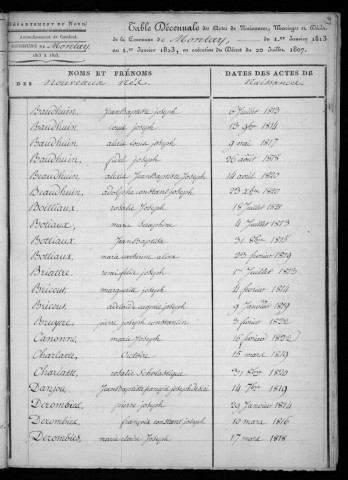 DÉPARTEMENT DU NORD.
Arrondissement de Cambrai.
COMMUNE DE Montay
1813 à 1823.
Table Décennale des Actes de Naissances, Mariages et Décès
de la Commune de Montay, du 1.er Janvier 1813
au 1.er Janvier 1823, en exécution du Décret du 20 Juillet 1807.
NOMS ET PRÉNOMS DATES DES ACTES DE
DES Nouveaux Nés. Naissances
Baudhuin Jean Baptiste Joseph 6 Juillet 1813
Baudhuin Louis Joseph 13 9bre 1814
Baudhuin Joseph 9 mai 1817
Baudhuin fidel Joseph 26 août 1818
Beaudhuin Jean Baptiste Joseph 14 avril 1820
Beaudhuin adolphe constant Joseph 23 xbre 1820
Boittiaux rosalie Joseph 18 Juillet 1821
Botiaux marie Seraphine 4 Juillet 1813
Bottiaux Jean Baptiste 31 8bre 1815
Bottiaux marie catherine 23 février 1819
Briattre rené felix Joseph 17 Juillet 1813
Bricout marguerite Joseph 4 février 1814
Bricout adelaïde eugenie Joseph 9 Janvier 1819
Bruyere pierre Joseph constantin 3 février 1822
Canonne marie Joseph 16 février 1822
Charlatte Victoire 15 mars 1819
Charlatte rosalie Scholastique 31 8bre 1820
Danjou Jean Baptiste françois Joseph 14 7bre 1819
Derombies pierre Joseph 29 Janvier 1814
Derombies françois constant Joseph 10 mars 1816
Derombies marie claire Joseph 17 mars 1818